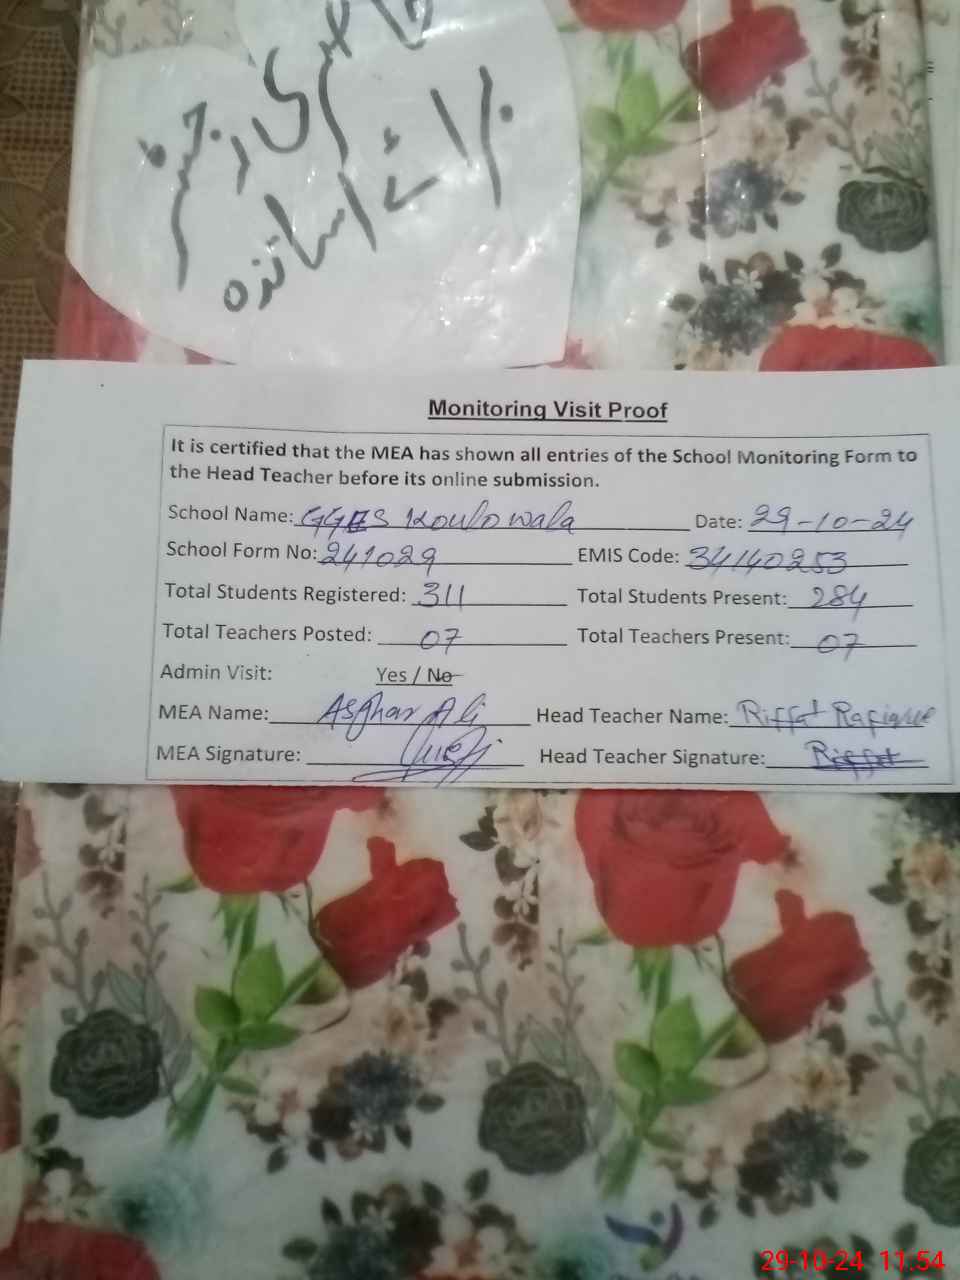 حاضری رجسٹر
برائے اساتذہ
Monitoring Visit Proof
It is certified that the MEA has shown all entries of the School Monitoring Form to
the Head Teacher before its online submission.
School Name: GGES Koulowala Date: 29-10-24
School Form No: 241029 EMIS Code: 34140253
Total Students Registered: 311 Total Students Present: 284
Total Teachers Posted: 07 Total Teachers Present: 07
Admin Visit: Yes / No
MEA Name: Asghar Ali Head Teacher Name: Riffat Rafique
MEA Signature: Head Teacher Signature: Riffat
29-10-24 11:54